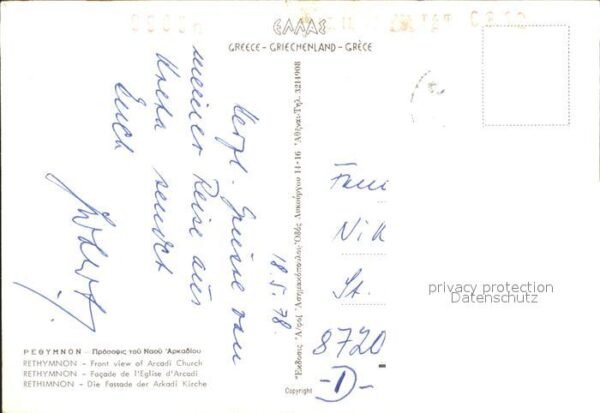 ΕΛΛΑΣ
GREECE - GRIECHENLAND - GRÈCE
18.5.78.
Herzl. Grüsse von
meiner Reise aus
Kreta sendet
Euch
Fam
Nik
St.
8720
-D-
privacy protection
Datenschutz
Ἔκδοσις Ἀ/φοί Ἀσημακόπουλοι-Ὁδὸς Λεκαρίγου 14-16 Ἀθῆναι-Τηλ. 3214908
ΡΕΘΥΜΝΟΝ - Πρόσοψις τοῦ Ναοῦ Ἀρκαδίου
RETHYMNON - Front view of Arcadi Church
RETHYMNON - Façade de l'Eglise d'Arcadi
RETHIMNON - Die Fassade der Arkadi Kirche
Copyright